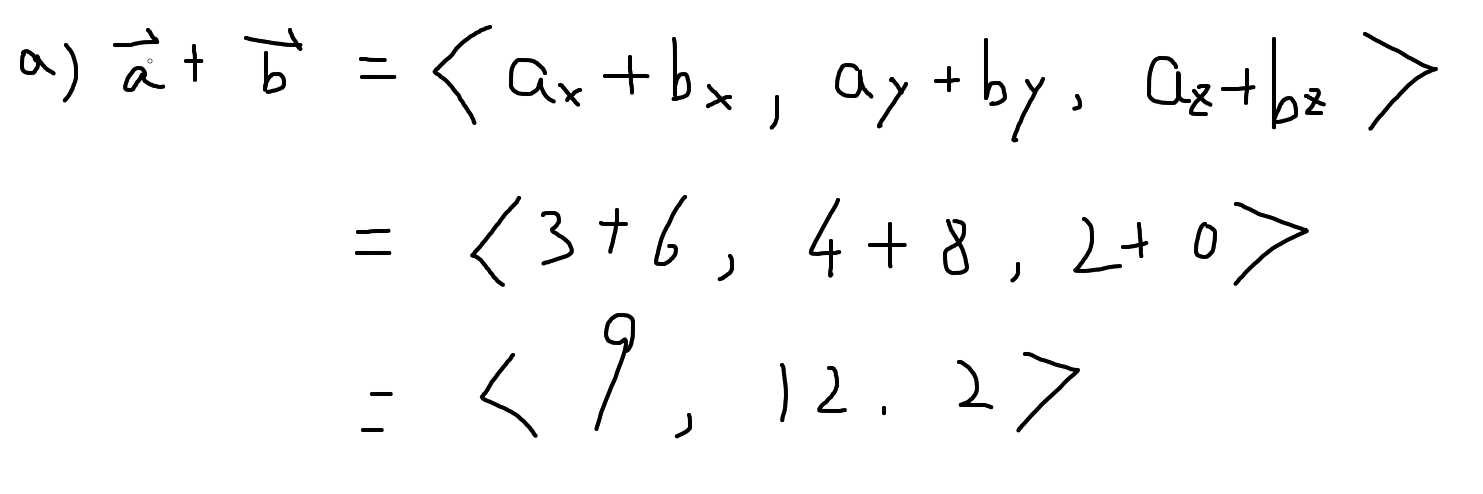 a) $\vec{a} + \vec{b} = \langle a_x + b_x, a_y + b_y, a_z + b_z \rangle$
$= \langle 3 + 6, 4 + 8, 2 + 0 \rangle$
$= \langle 9, 12. 2 \rangle$